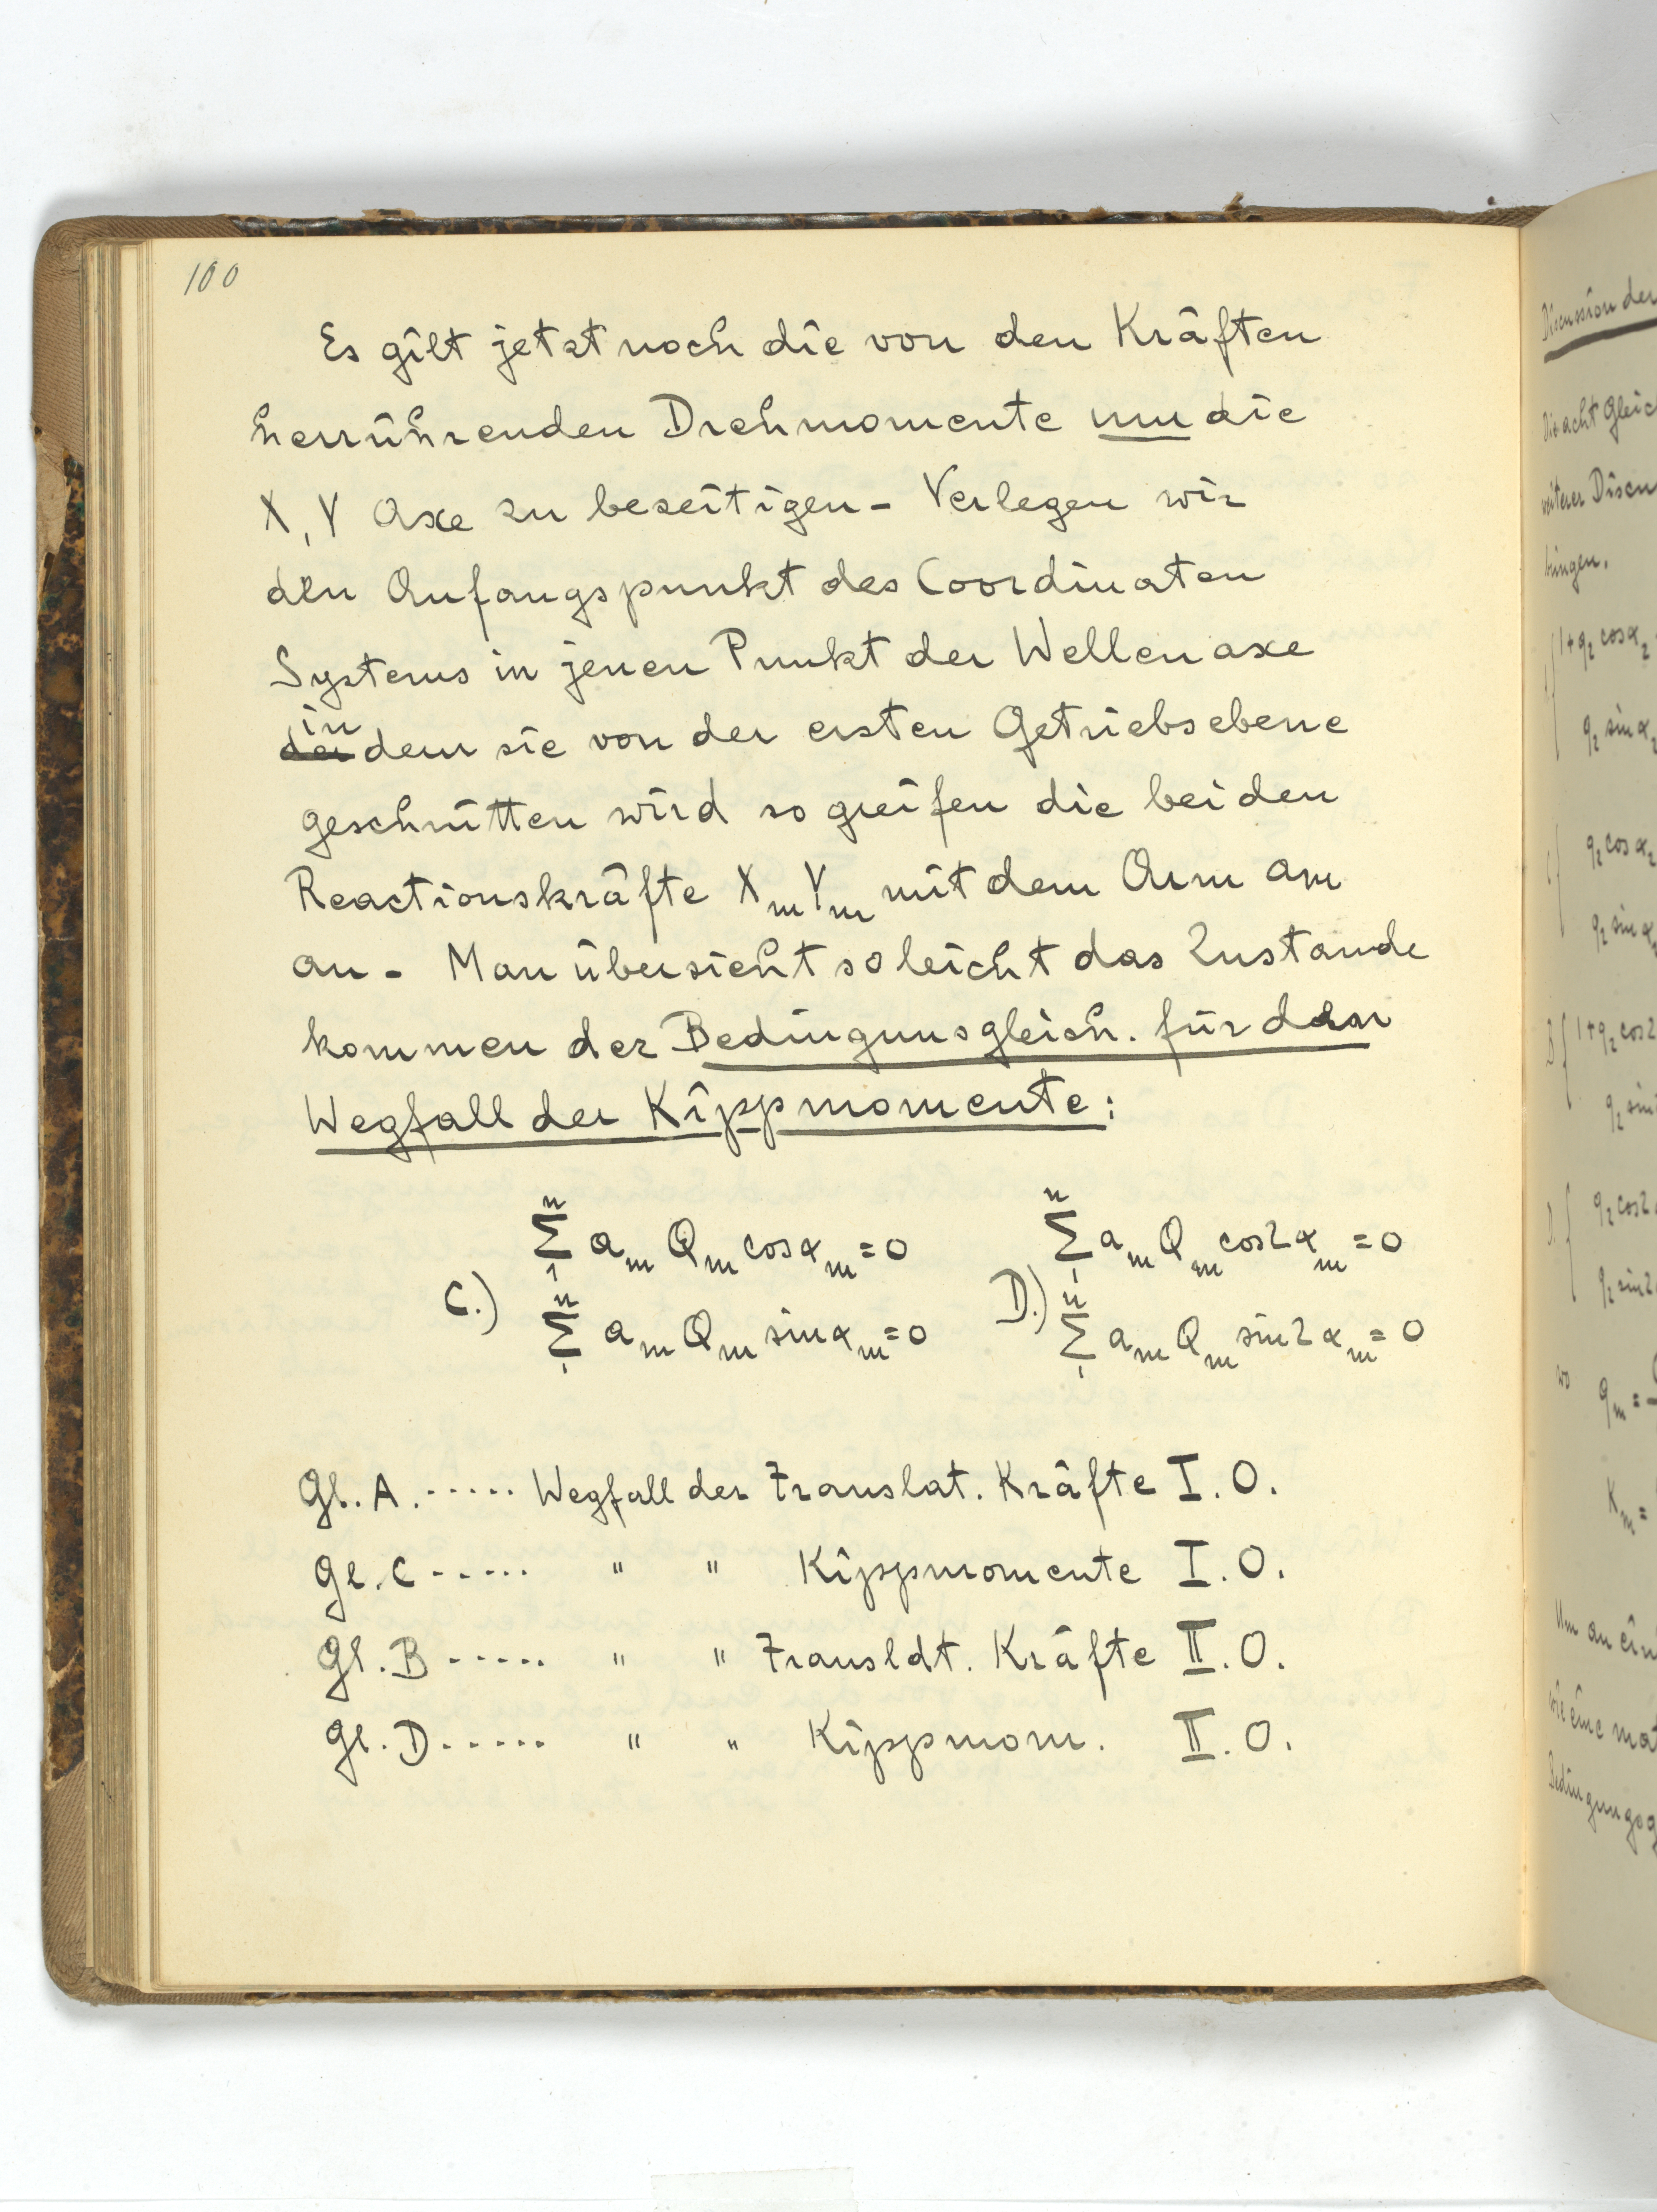 100
Es gilt jetzt noch die von den Kräften
herrührenden Drehmomente um die
X, Y Axe zu beseitigen - Verlegen wir
den Anfangspunkt des Coordinaten
Systems in jenen Punkt der Wellenaxe
in
der dem sie von der ersten Getriebsebene
geschnitten wird so greifen die beiden
Reactionskräfte XₘYₘ mit dem Arm aₘ
an - Man übersieht so leicht das Zustande
kommen der Bedingunsgleich. für den
Wegfall der Kippmomente:
C.) Σ₁ⁿ aₘ Qₘ cosαₘ = 0
Σ₁ⁿ aₘ Qₘ sinαₘ = 0
D.) Σ₁ⁿ aₘ Qₘ cos2αₘ = 0
Σ₁ⁿ aₘ Qₘ sin2αₘ = 0
Gl. A. ..... Wegfall der Translat. Kräfte I. O.
Gl. C ...... " " Kippmomente I. O.
Gl. B ...... " " Translat. Kräfte II. O.
Gl. D ...... " " Kippmom. II. O.
Discussion der
Die acht Gleic
weiterer Discu
bringen.
1+q₂ cosα₂
q₂ sinα₂
C q₂ cosα₂
q₂ sinα₂
B 1+q₂ cos2
q₂ sin2
D q₂ cos2
q₂ sin2
wo qₘ =
Kₘ =
Um an ein
wie eine mat
Bedingungsg